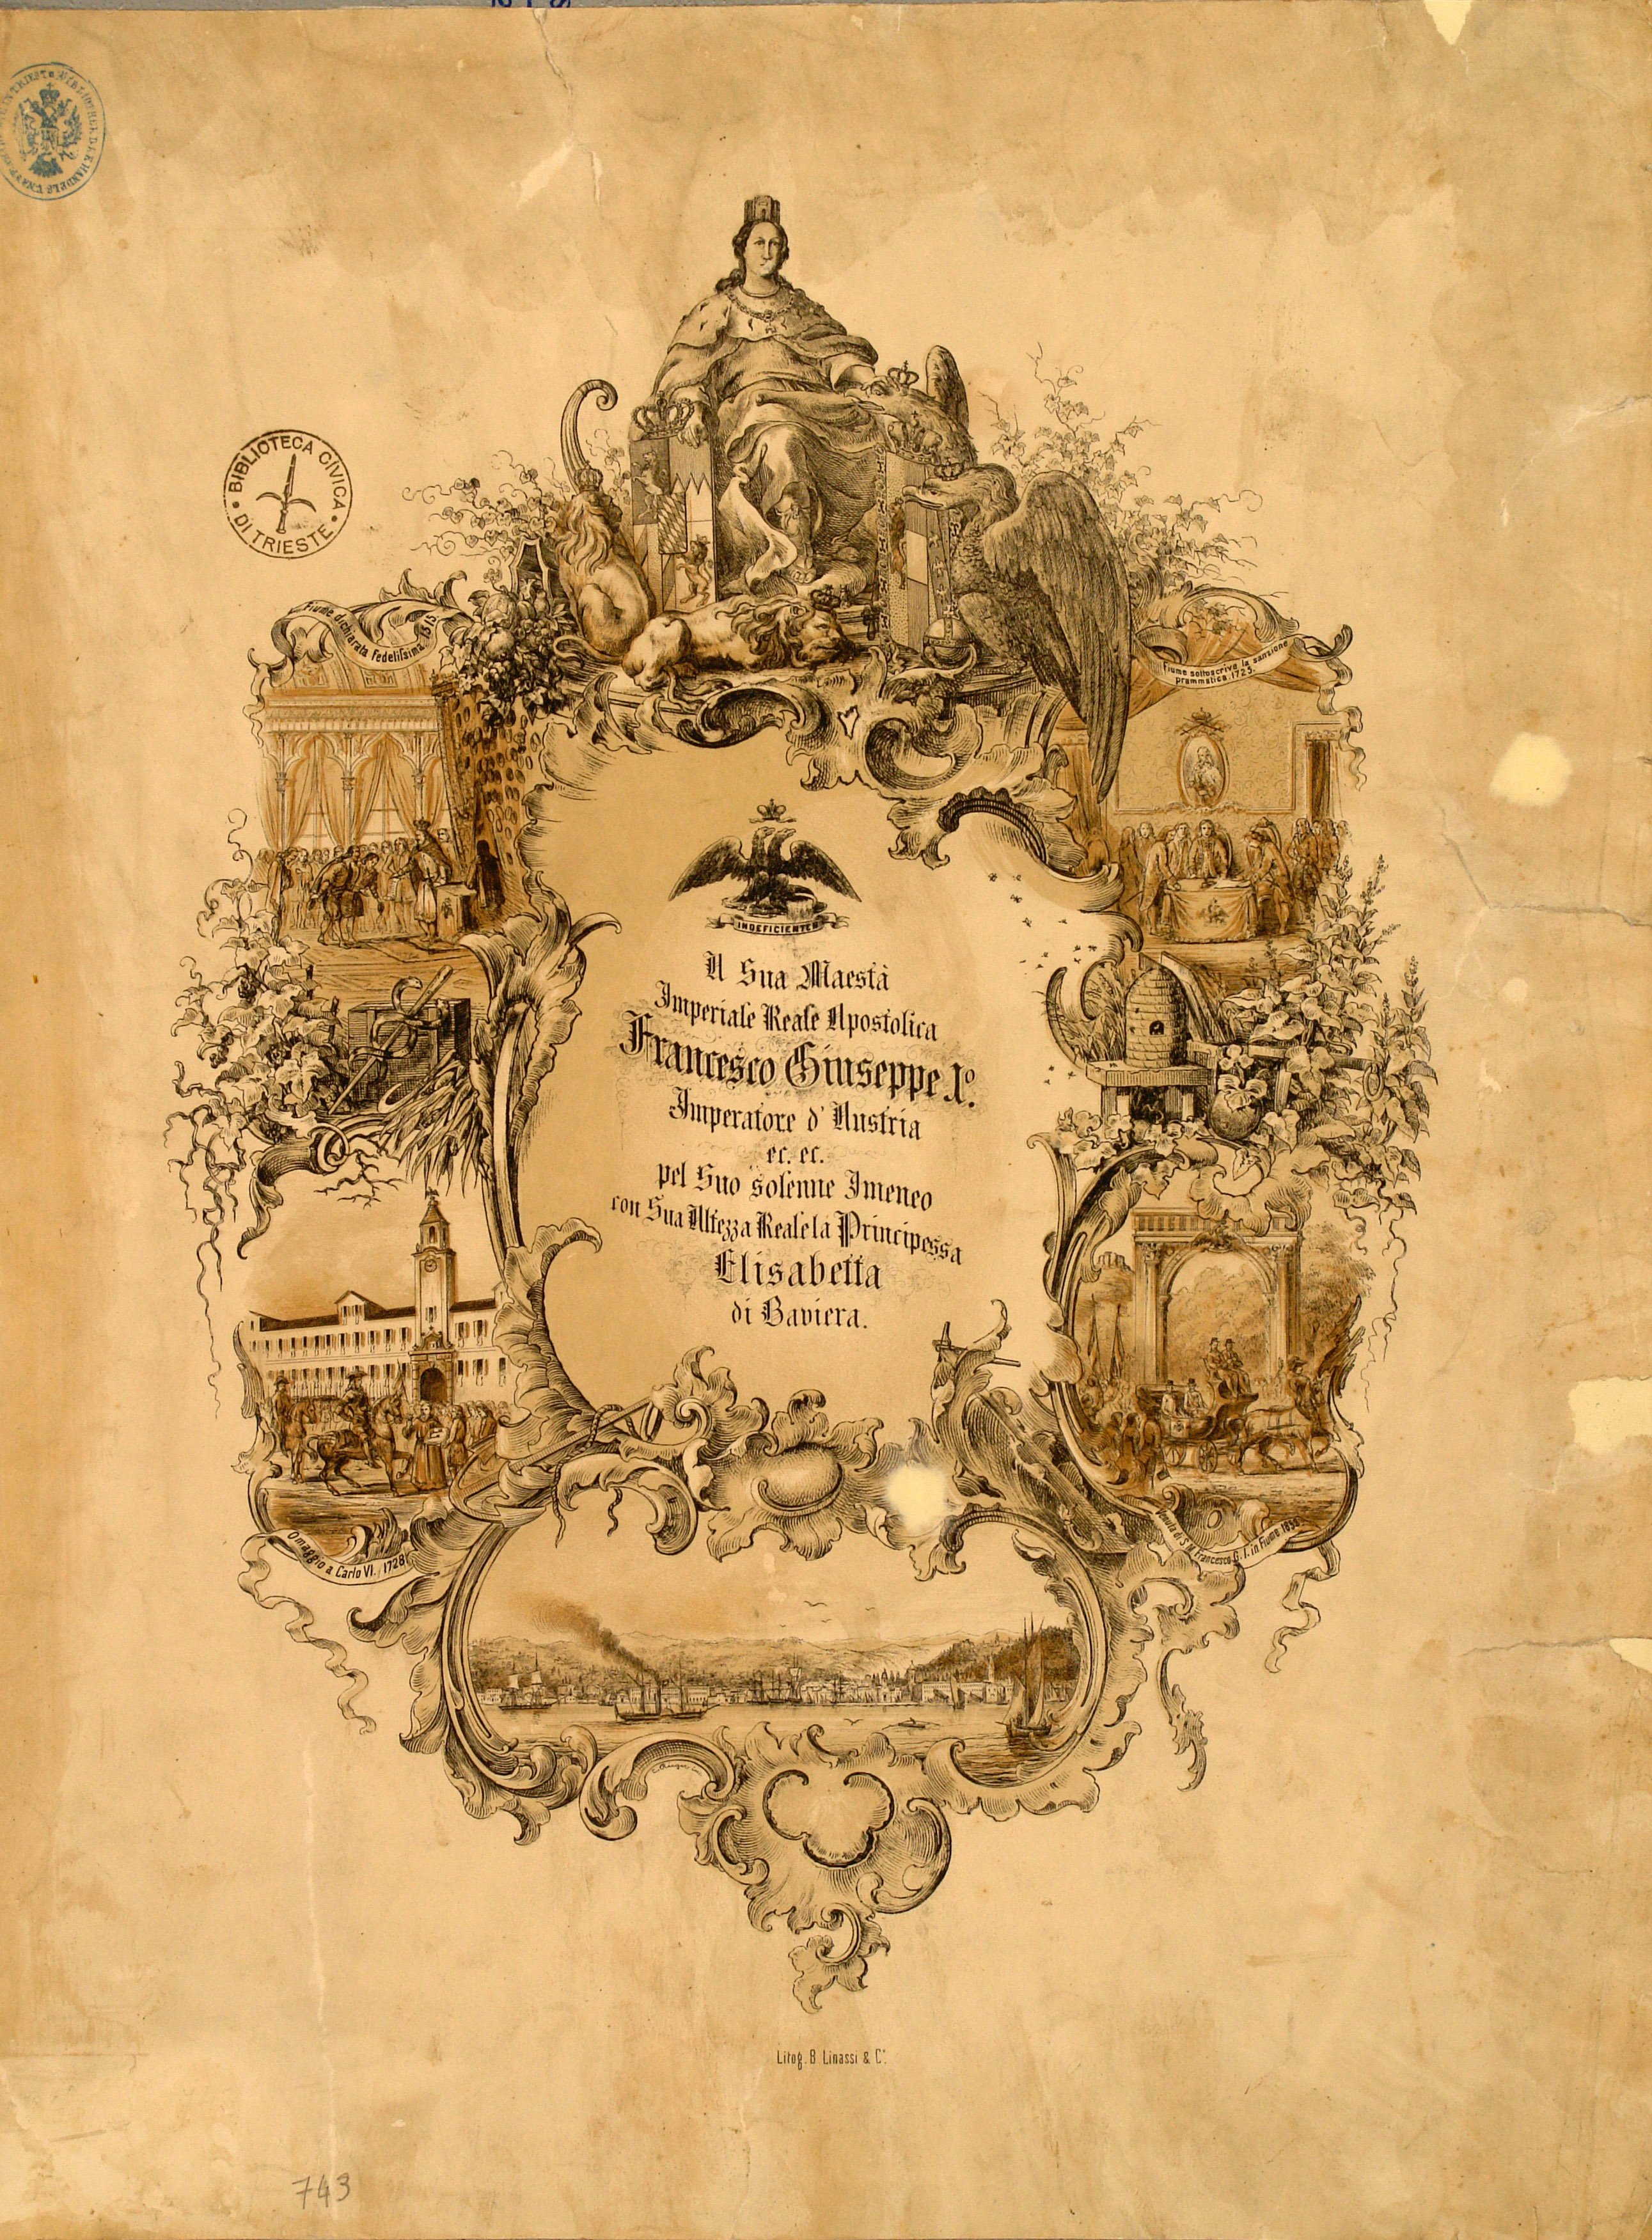 BIBLIOTECA CIVICA
DI TRIESTE
Fiume dichiarata fedelissima 1515
Fiume sottoscrive la sanzione
prammatica 1725.
INDEFICIENTER
A Sua Maestà
Imperiale Reale Apostolica
Francesco Giuseppe Iº.
Imperatore d'Austria
ec. ec.
pel Suo solenne Imeneo
con Sua Altezza Reale la Principessa
Elisabetta
di Baviera.
Omaggio a Carlo VI. 1728
di S. M. Francesco G. I. in Fiume
Litog. B. Linassi & Cº.
743